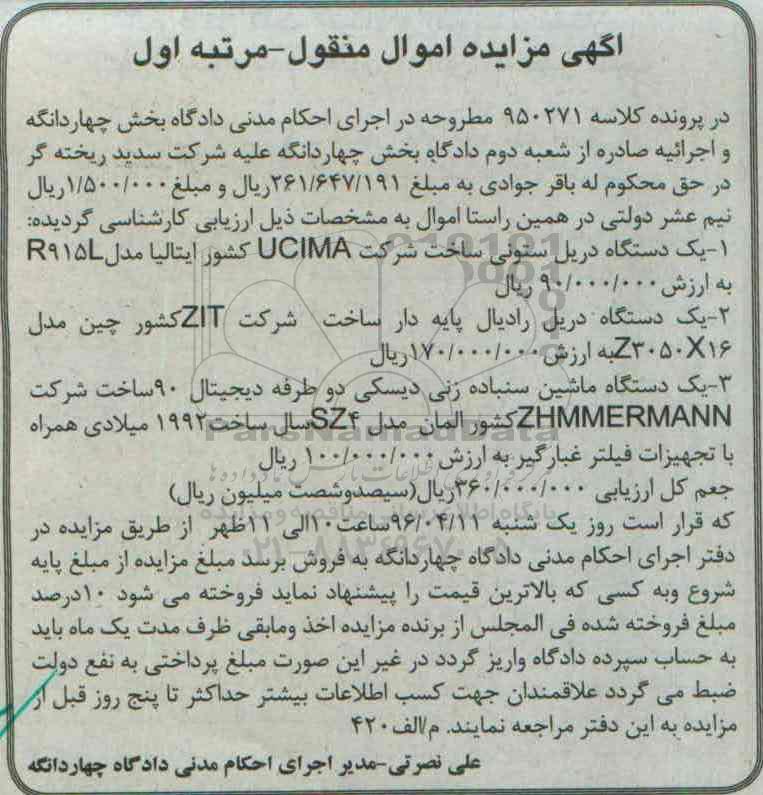 اگهی مزایده اموال منقول-مرتبه اول
در پرونده کلاسه ۹۵۰۲۷۱ مطروحه در اجرای احکام مدنی دادگاه بخش چهاردانگه
و اجرائیه صادره از شعبه دوم دادگاه بخش چهاردانگه علیه شرکت سدید ریخته گر
در حق محکوم له باقر جوادی به مبلغ ۲۶۱/۶۴۷/۱۹۱ریال و مبلغ ۱/۵۰۰/۰۰۰ریال
نیم عشر دولتی در همین راستا اموال به مشخصات ذیل ارزیابی کارشناسی گردیده:
۱-یک دستگاه دریل ستونی ساخت شرکت UCIMA کشور ایتالیا مدل R۹۱۵L
به ارزش ۹۰/۰۰۰/۰۰۰ ریال
۲-یک دستگاه دریل رادیال پایه دار ساخت شرکت ZITکشور چین مدل
Z۳۰۵۰X۱۶به ارزش ۱۷۰/۰۰۰/۰۰۰ریال
۳-یک دستگاه ماشین سنباده زنی دیسکی دو طرفه دیجیتال ۹۰ساخت شرکت
ZHMMERMANNکشور المان مدل SZ۴سال ساخت۱۹۹۲ میلادی همراه
با تجهیزات فیلتر غبارگیر به ارزش ۱۰۰/۰۰۰/۰۰۰ ریال
جعم کل ارزیابی ۳۶۰/۰۰۰/۰۰۰ریال(سیصدوشصت میلیون ریال)
که قرار است روز یک شنبه ۹۶/۰۴/۱۱ساعت۱۰الی ۱۱ظهر از طریق مزایده در
دفتر اجرای احکام مدنی دادگاه چهاردانگه به فروش برسد مبلغ مزایده از مبلغ پایه
شروع وبه کسی که بالاترین قیمت را پیشنهاد نماید فروخته می شود ۱۰درصد
مبلغ فروخته شده فی المجلس از برنده مزایده اخذ ومابقی ظرف مدت یک ماه باید
به حساب سپرده دادگاه واریز گردد در غیر این صورت مبلغ پرداختی به نفع دولت
ضبط می گردد علاقمندان جهت کسب اطلاعات بیشتر حداکثر تا پنج روز قبل از
مزایده به این دفتر مراجعه نمایند. م/الف۴۲۰
علی نصرتی-مدیر اجرای احکام مدنی دادگاه چهاردانگه
ParsNamadData